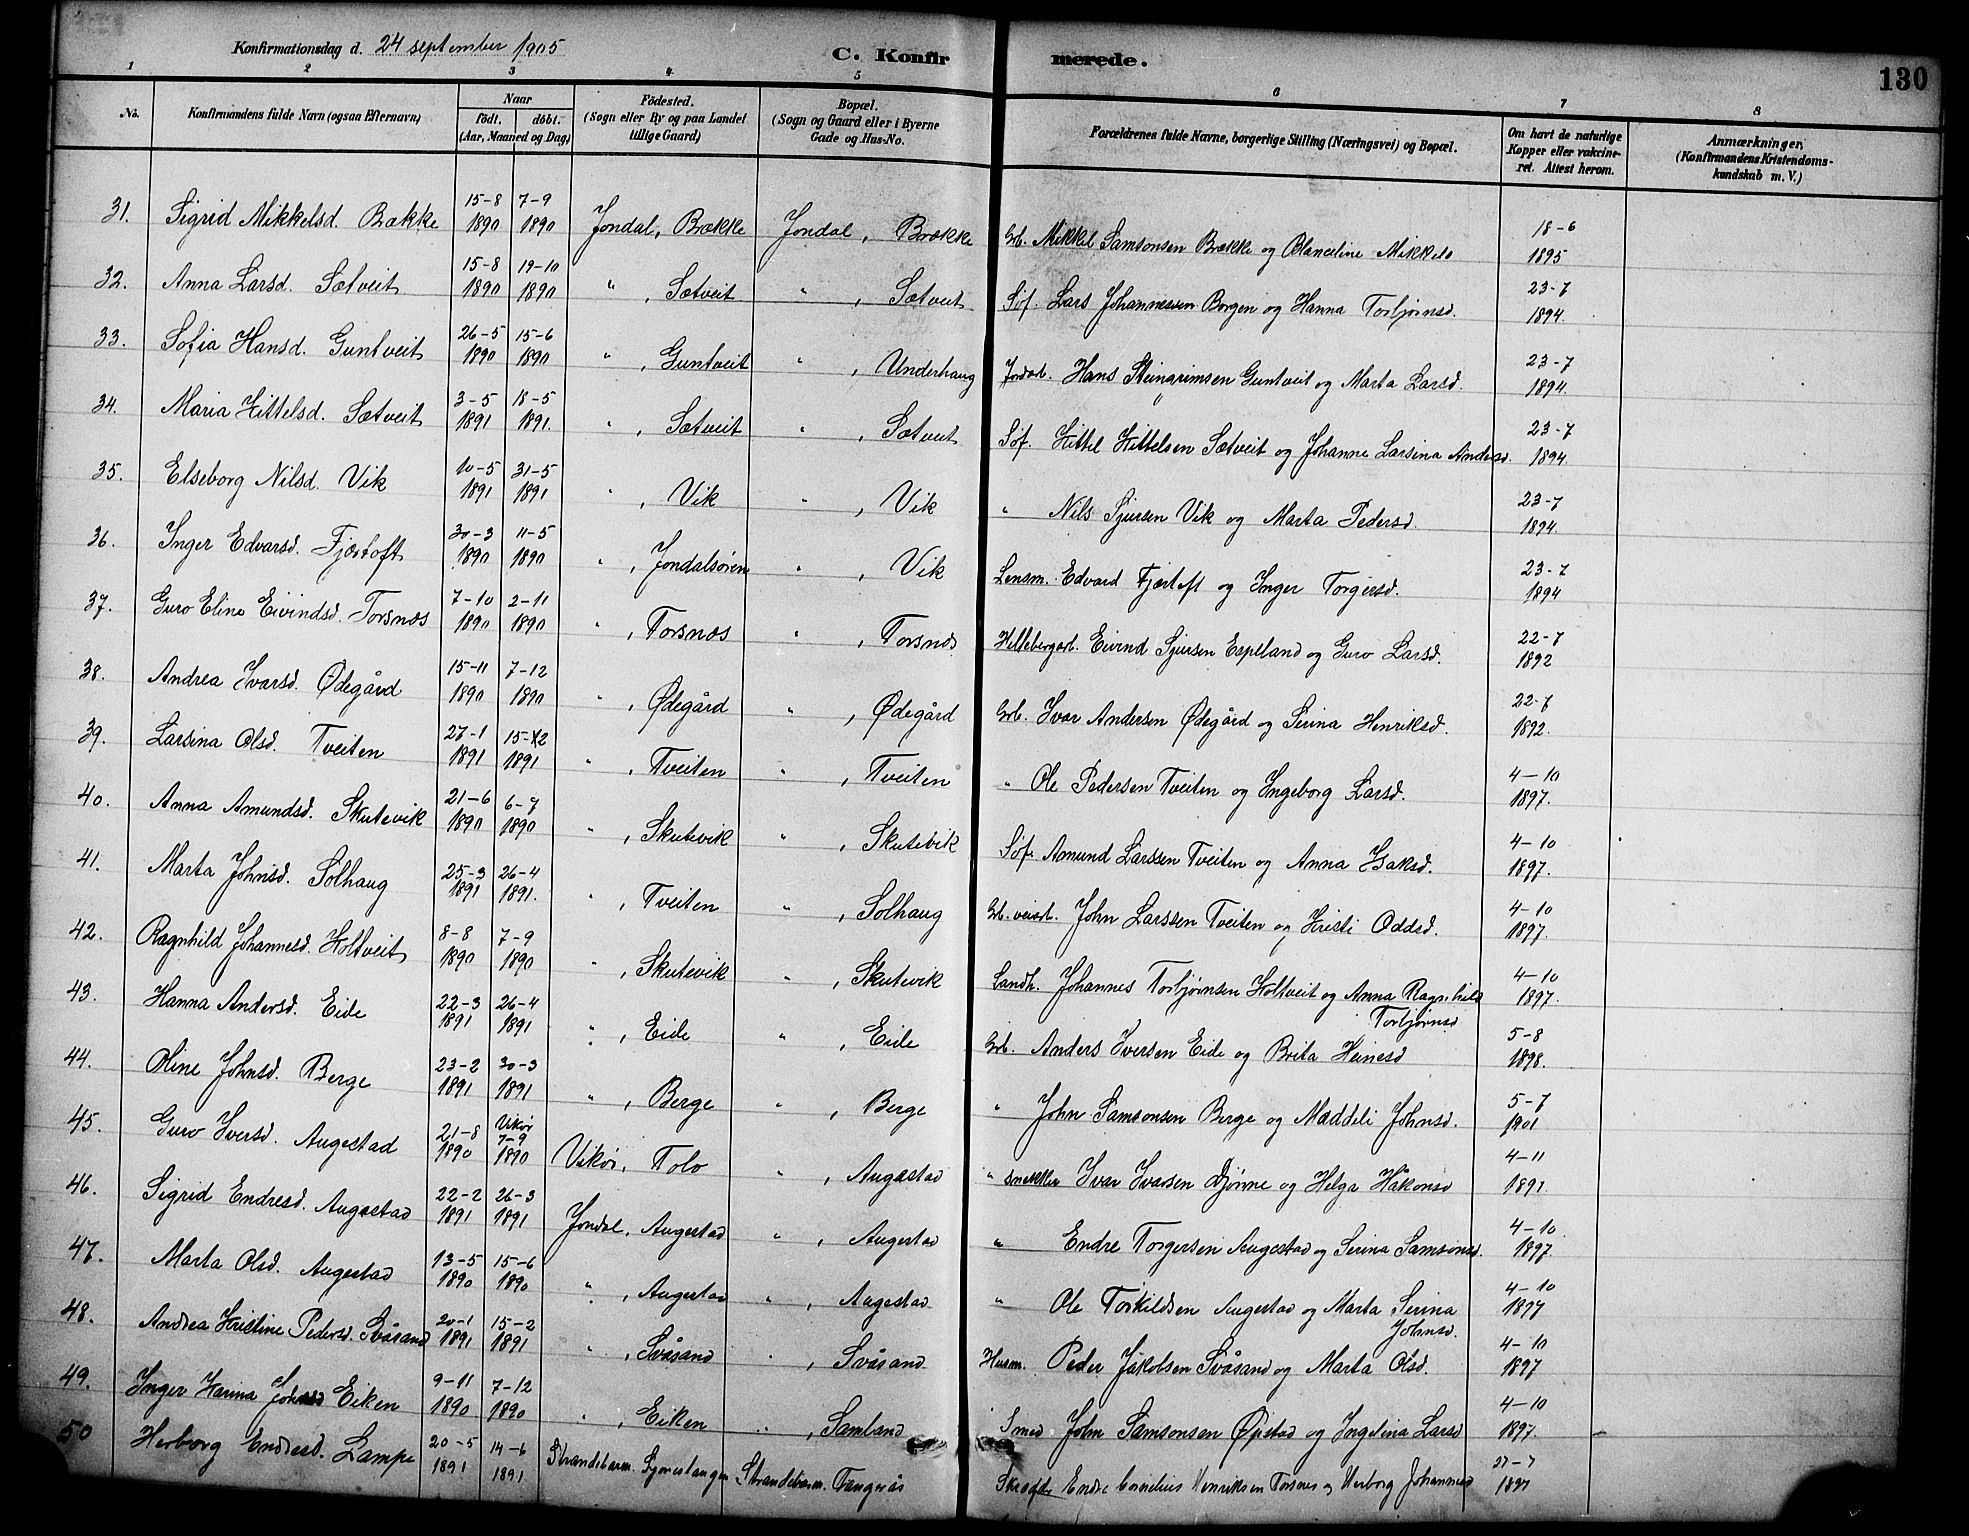 Konfirmationsdag d. 24 september 1905
C. Konfirmerede.
130
1 2 3 4 5 6 7 8
No. Konfirmandens fulde Navn (ogsaa Efternavn) Naar födt. döbt. (Aar, Maaned og Dag) Födested. (Sogn eller By og paa Landet tillige Gaard) Bopæl. (Sogn og Gaard eller i Byerne Gade og Hus-No. Forældrenes fulde Navne, borgerlige Stilling (Næringsvei) og Bopæl. Om havt de naturlige Kopper eller vakcineret. Attest herom. Anmærkninger. (Konfirmandens Kristendomskundskab m. V.)
31. Sigrid Mikkelsd. Brække 15-8 1890 7-9 1890 Jondal, Brække Jondal, Brække Grb. Mikkel Samsonsen Brække og Blanceline Mikkels 18-6 1895
32. Anna Larsd. Sætveit 15-8 1890 19-10 1890 " , Sætveit " , Sætveit Søf. Lars Johannessen Borgen og Hanna Torbjørnsd. 23-7 1894.
33. Sofia Hansd. Guntveit 26-5 1890 15-6 1890 " , Guntveit " , Underhaug Jordarb. Hans Steingrimsen Guntveit og Marta Larsd. 23-7 1894.
34. Maria Kittelsd. Sætveit 3-5 1891 18-5 1891. " , Sætveit " , Sætveit Søf. Kittel Kittelsen Sætveit og Johanne Larsina Andersd. 23-7 1894.
35. Elseborg Nilsd. Vik 10-5 1891 31-5 1891 " , Vik " , Vik " Nils Sjursen Vik og Marta Pedersd. 23-7 1894.
36. Inger Edvarsd. Fjærtoft 30-3 1890 11-5 1890 " , Jondalsøren " , Vik Lensm. Edvard Fjærtoft og Inger Torgersd. 23-7 1894
37. Guro Eline Eivindsd. Torsnæs 7-10 1890 2-11 1890 " , Torsnæs " , Torsnæs Hillebergarb. Eivind Sjursen Espeland og Guro Larsd. 22-7 1892
38. Andrea Ivarsd. Ødegård 15-11 1890 7-12 1890 " , Ødegård " , Ødegård Grb. Ivar Andersen Ødegård og Serina Henriksd. 22-7 1892.
39. Larsina Olsd. Tveiten 27-1 1891 15-2 1891 " , Tveiten " , Tveiten " Ole Pedersen Tveiten og Ingeborg Larsd. 4-10 1897.
40. Anna Amundsd. Skutevik 21-6 1890 6-7 1890 " , Skutevik " , Skutevik Søf. Amund Larssen Tveiten og Anna Isaksd. 4-10 1897.
41. Marta Johnsd. Solhaug 25-3 1891 26-4 1891. " , Tveiten " , Solhaug Grb. veiarb. John Larssen Tveiten og Kristi Oddsd. 4-10 1897.
42. Ragnhild Johannesd. Holtveit 8-8 1890 7-9 1890 " , Skutevik " , Skutevik Landh. Johannes Torbjørnsen Holtveit og Anna Ragnhild Torbjørnsd 4-10 1897.
43. Hanna Andersd. Eide 22-3 1891 26-4 1891 " , Eide " , Eide Grb. Anders Iversen Eide og Brita Heinesd 5-8 1898.
44. Oline Johnsd. Berge 23-2 1891 30-3 1891 " , Berge " , Berge " John Samsonsen Berge og Maddeli Johnsd. 5-7 1901
45. Guro Iversd. Augestad 21-8 1890 Vikør 7-9 1890 Vikør, Tolo " , Augestad " snekker Ivar Ivarsen Djønne og Helga Håkonsd 4-11 1891.
46. Sigrid Endresd. Augestad 22-2 1891 26-3 1891 Jondal, Augestad " , Augestad " Endre Torgersen Augestad og Serina Samsonsd. 4-10 1897.
47. Marta Olsd. Augestad 13-5 1890 15-6 1890 " , Augestad " , Augestad " Ole Torkildsen Augestad og Marta Serina Johnsd. 4-10 1897
48. Andrea Kristine Pedersd. Svåsand 20-1 1891 15-2 1891 " , Svåsand " , Svåsand Husm. Peder Jakobsen Svåsand og Marta Olsd. 4-10 1897
49. Inger Karina Johnsd Eiken 9-11 1890 7-12 1890 " , Eiken " , Samland Smed John Samsonsen Øpstad og Ingelina Larsd 4-10 1897.
50 Herborg Endresd. Lampe 20-5 1891 14-6 1891 Strandebarm. Strandebarm. Tangerås Endre Cornelius Henriksen Torsnes og Herborg Johannesd